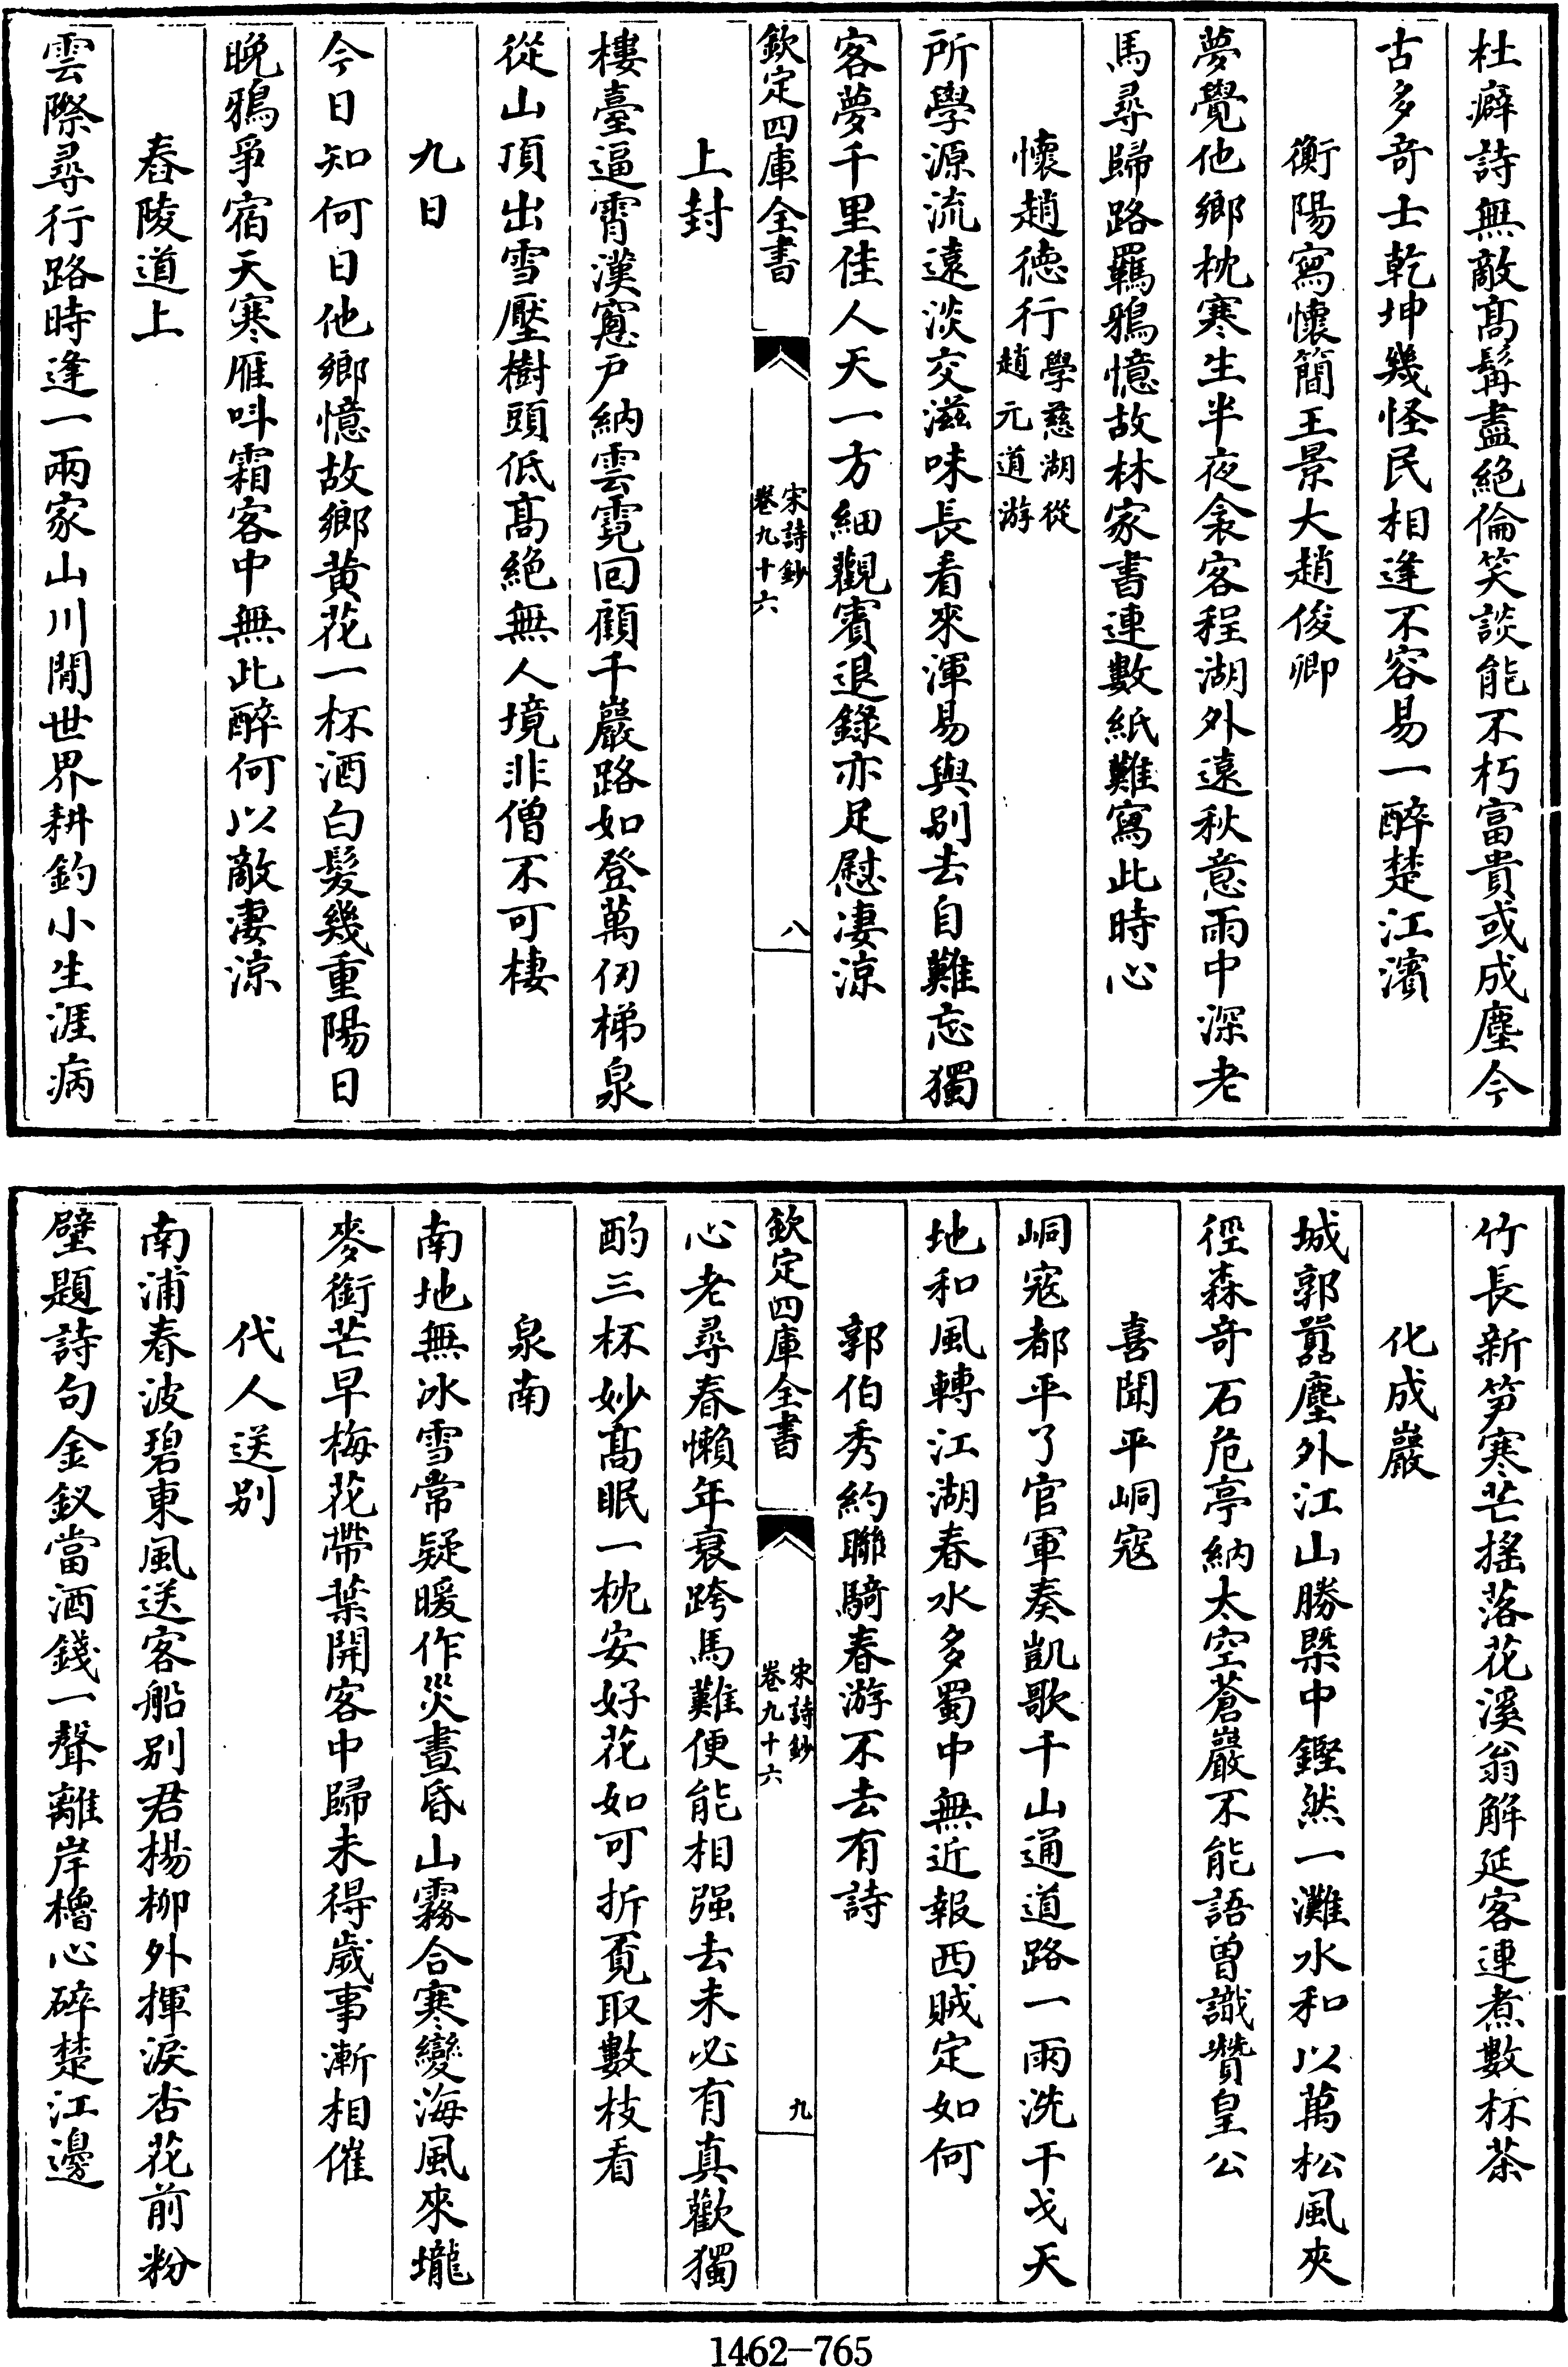 杜癖詩無敵高髯盡絕倫笑談能不朽富貴或成塵今
古多奇士乾坤幾怪民相逢不容易一醉楚江濱
衡陽寫懷簡王景大趙俊卿
夢覺他鄉枕寒生半夜衾客程湖外遠秋意雨中深老
馬尋歸路羈鴉憶故林家書連數紙難寫此時心
懷趙德行學慈湖從趙元道游
所學源流遠淡交滋味長看來渾易與別去自難忘獨
客夢千里佳人天一方細觀賓退錄亦足慰凄涼
欽定四庫全書 宋詩鈔卷九十六 八
上封
樓臺逼霄漢窓戶納雲霓回顧千巖路如登萬仞梯泉
從山頂出雪壓樹頭低高絕無人境非僧不可棲
九日
今日知何日他鄉憶故鄉黄花一杯酒白髮幾重陽日
晚鴉爭宿天寒雁呌霜客中無此醉何以敵凄涼
舂陵道上
雲際尋行路時逢一兩家山川閒世界耕釣小生涯病
竹長新笋寒芒搖落花溪翁解延客連煮數杯茶
化成巖
城郭囂塵外江山勝槩中鏗然一灘水和以萬松風夾
徑森奇石危亭納太空蒼巖不能語曾識贊皇公
喜聞平峒寇
峒寇都平了官軍奏凱歌千山通道路一雨洗干戈天
地和風轉江湖春水多蜀中無近報西賊定如何
郭伯秀約聯騎春游不去有詩
欽定四庫全書 宋詩鈔卷九十六 九
心老尋春懶年衰跨馬難便能相强去未必有真歡獨
酌三杯妙高眠一枕安好花如可折覔取數枝看
泉南
南地無冰雪常疑暖作災晝昏山霧合寒變海風來壠
麥銜芒早梅花帶葉開客中歸未得歲事漸相催
代人送別
南浦春波碧東風送客船別君楊柳外揮淚杏花前粉
壁題詩句金釵當酒錢一聲離岸櫓心碎楚江邊
1462-765